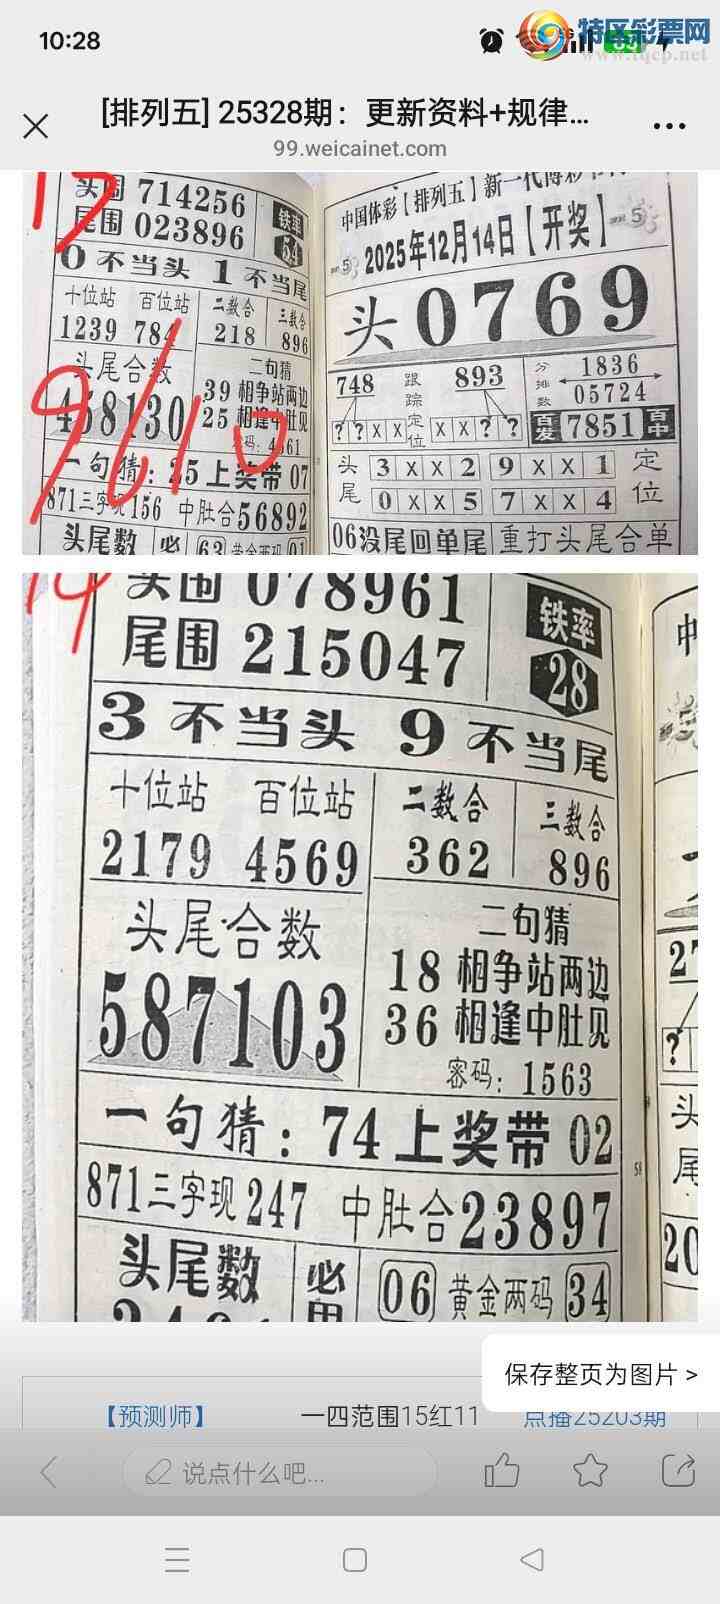 10:28
特区彩票网
www.tqcp.net
[排列五] 25328期：更新资料+规律...
99.weicainet.com
头围 714256
尾围 023896
铁率
54
0 不当头 1 不当尾
十位站 百位站 二数合 三数合
1239 784 218 896
头尾合数
458130
二句猜
39 相争站两边
25 相逢中肚见
一句猜：25上奖带07
871三字现156 中肚合56892
头尾数 必 63 黄金两码 01
中国体彩【排列五】新一代博彩
2025年12月14日【开奖】
头0769
748 跟踪定位 893
? ? x x x x ? ?
分排数
1836
05724
百发 7851 百中
头 3 x x 2 9 x x 1 定
尾 0 x x 5 7 x x 4 位
06没尾回单尾 重打头尾合单
14
头围 078961
尾围 215047
铁率
28
3 不当头 9 不当尾
十位站 百位站 二数合 三数合
2179 4569 362 896
头尾合数
587103
二句猜
18 相争站两边
36 相逢中肚见
密码：1563
一句猜：74上奖带02
871三字现247 中肚合23897
头尾数 必用 06 黄金两码 34
58
中
27
?
头
尾
20
保存整页为图片 >
【预测师】 一四范围15红11 点播25203期
说点什么吧...